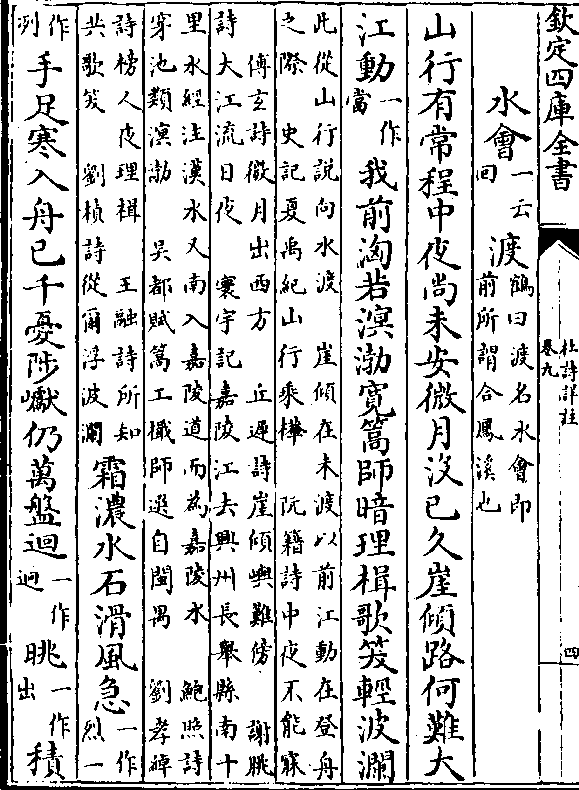 欽定四庫全書
杜詩詳註
卷九
四
水會一云回渡鶴曰渡名水會即前所謂合鳳溪也
山行有常程中夜尚未安微月沒已久崖傾路何難大
江動一作當我前洶若溟渤寬篙師暗理楫歌笑輕波瀾
此從山行說向水渡 崖傾在未渡以前江動在登舟
之際 史記夏禹紀山行乘檋 阮籍詩中夜不能寐
傅玄詩微月出西方 丘遲詩崖傾嶼難傍 謝朓
詩大江流日夜 寰宇記嘉陵江去興州長舉縣南十
里水經注漢水又南入嘉陵道而為嘉陵水 鮑照詩
穿池類溟渤 吳都賦篙工檝師選自閩禺 劉孝綽
詩榜人夜理楫 王融詩所知
共歌笑 劉楨詩從爾浮波瀾
霜濃水石滑風急一作烈一
作冽手足寒入舟已千憂陟巘仍萬盤迴一作迥眺一作出積